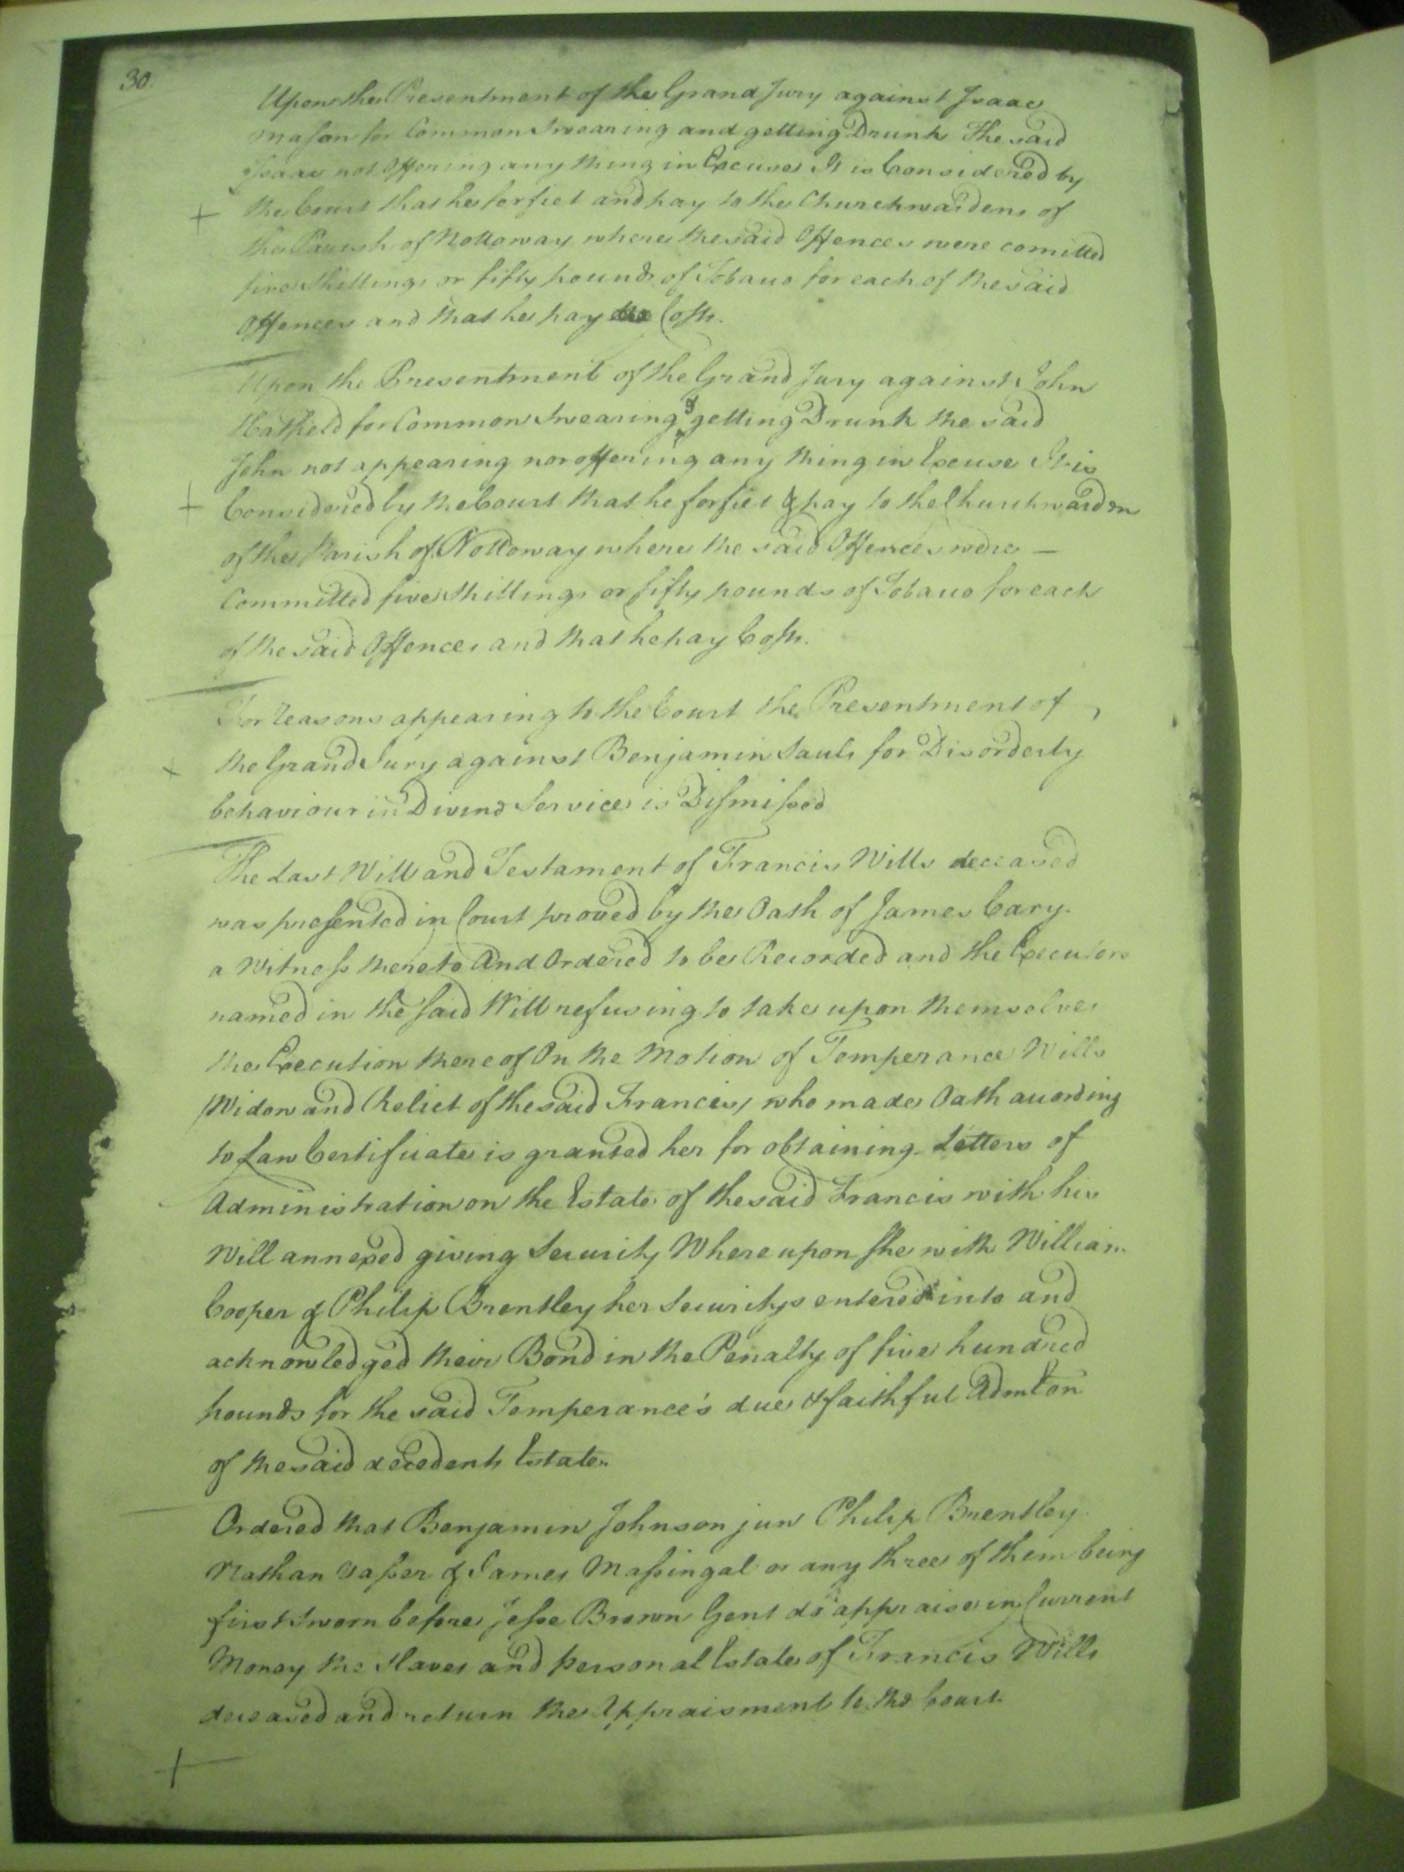 30
Upon the Presentment of the Grand Jury against Isaac
Mason for Common Swearing and getting Drunk The said
Isaac not Offering any thing in Excuse It is Considered by
the Court that he forfiet and pay to the Churchwardens of
the Parish of Nottoway where the said Offences were comitted
five Shillings or fifty pounds of Tobacco for each of the said
Offences and that he pay Costs.
Upon the Presentment of the Grand Jury against John
Hatfield for Common Swearing & getting Drunk the said
John not appearing nor offering any thing in Excuse It is
Considered by the Court that he forfiet & pay to the Churchwarden
of the Parish of Nottoway where the said Offences were —
Committed five Shillings or fifty pounds of Tobacco for each
of the said Offences and that he pay Costs.
For reasons appearing to the Court the Presentment of
the Grand Jury against Benjamin Sauls for Disorderly
behaviour in Divine Service is Dismissed
The Last Will and Testament of Francis Wills deceased
was presented in Court proved by the Oath of James Cary.
a Witness thereto And Ordered to be Recorded and the Executors
named in the said Will refusing to take upon themselves
the Execution thereof On the Motion of Temperance Wills
Widow and Relict of the said Francis, who made Oath according
to Law Certificate is granted her for obtaining Letters of
Administration on the Estate of the said Francis with his
Will annexed giving Security Whereupon she with William
Cooper & Philip Brentley her Securitys entered into and
acknowledged their Bond in the Penalty of five hundred
pounds for the said Temperance's due & faithful Admton
of the said decedents Estate.
Ordered that Benjamin Johnson jun Philip Brentley
Nathan Vasser & James Massingal or any three of them being
first Sworn before Jesse Brown Gent do appraise in Current
Money the Slaves and personal Estate of Francis Wills
deceased and return the Appraisment to the Court.